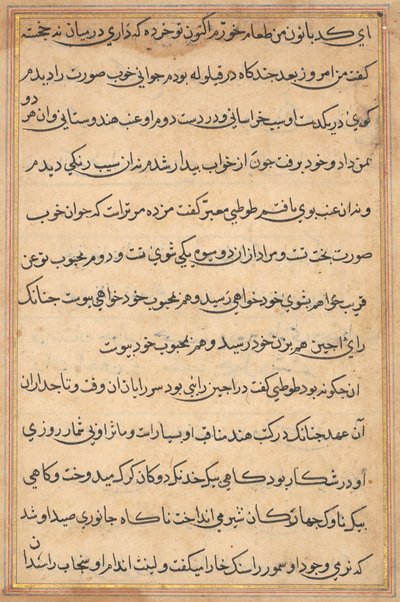 ای کدبانو من طعام خوردم اکنون تو خورده که داری درمیان نه خجسته
کفت من امروز بعد چندکاه در قیلوله بودم جوانی خوب صورت را دیدم
کوئی در یکدست او سیب خراسانی و در دست دوم او عنب هندوستانی و آن هر دو
بمن داد و خود برفت چون از خواب بیدار شدم نه از ان سیب رنکی دیدم
و نه از ان عنب بوی یافتم طوطی معبر کفت مژده مر تراست که جوان خوب
صورت بخت تست و مراد از ان دو میوه یکی شوی تست و دوم محبوب تو عن
قریب تو هم بشوی خود خواهی رسید و هم بمحبوب خود خواهی پیوست چنانک
رای اجین هم بزن خود رسید و هم بمحبوب خود پیوست
ان چکونه بود طوطی کفت در اجین رایی بود سر رایان ان وقت و تاجداران
آن عهد چنانک در کتب هند مناقب او بسیارست و مآثر او بی شمار روزی
او در شکار بود کاهی بیک خدنک دو کان کرک میدوخت و کاهی
بیک ناوک چهار کان شیر می انداخت ناکاه جانوری صید او شد
که نرمی وجود او سمور را سنک خارا میکفت و لینت اندام او سنجاب را سندان